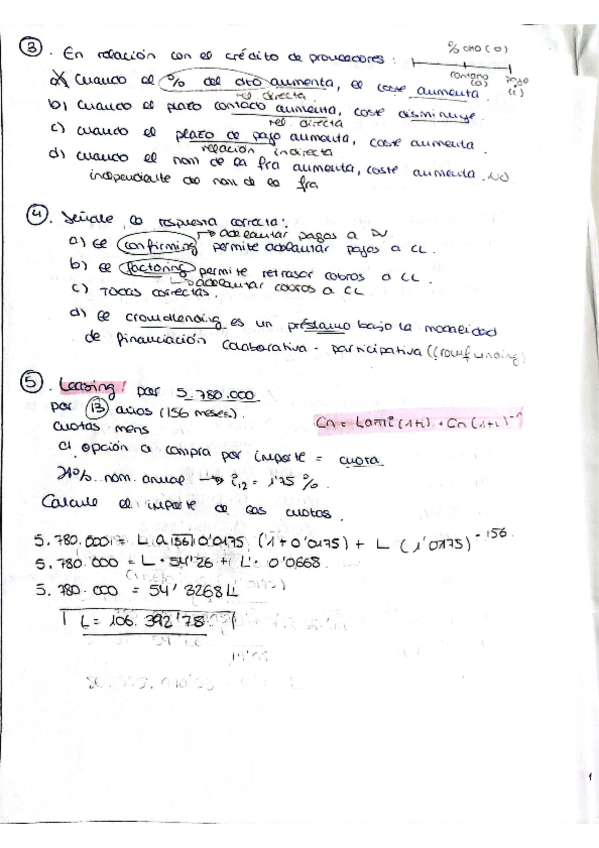 ③. En relación con el crédito de proveedores: % dto (0)
contado (0) pago (i)
a) Cuando el % del dto aumenta, el coste aumenta.
rel directa
b) Cuando el plazo contado aumenta, coste disminuye.
rel. directa
c) cuando el plazo de pago aumenta, coste aumenta.
relación indirecta
d) cuando el nom de la fra aumenta, coste aumenta. NO
independiente do nom de la fra
④. Señale la respuesta correcta:
→ adelantar pagos a PV
a) el confirming permite adelantar pagos a CL.
b) el factoring permite retrasar cobros a CL.
↳ adelantar cobros a CL
c) Todas correctas.
d) el crowdlending es un préstamo bajo la modalidad
de financiación colaborativa - participativa (crowfunding)
⑤. Leasing! por 5.780.000
por 13 años (156 meses).
Cuotas mens
c/ opción a compra por importe = cuota
21% nom. anual → i12 = 1'75%.
Calcule el importe de las cuotas.
5.780.000 = L a 156 0'0175 (1+0'0175) + L (1'0175)⁻¹⁵⁶
5.780.000 = L · 54'26 + L · 0'0668
5.780.000 = 54'3268 L
L = 106.392'78